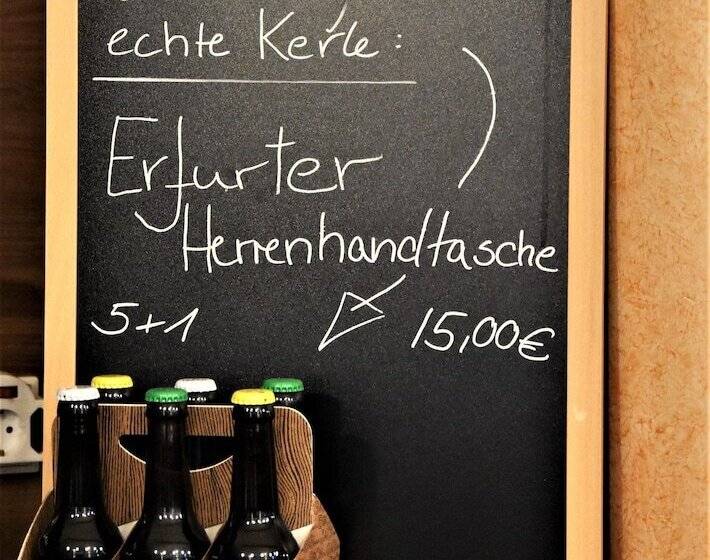 echte Kerle:
Erfurter
Herrenhandtasche
5+1 15,00€